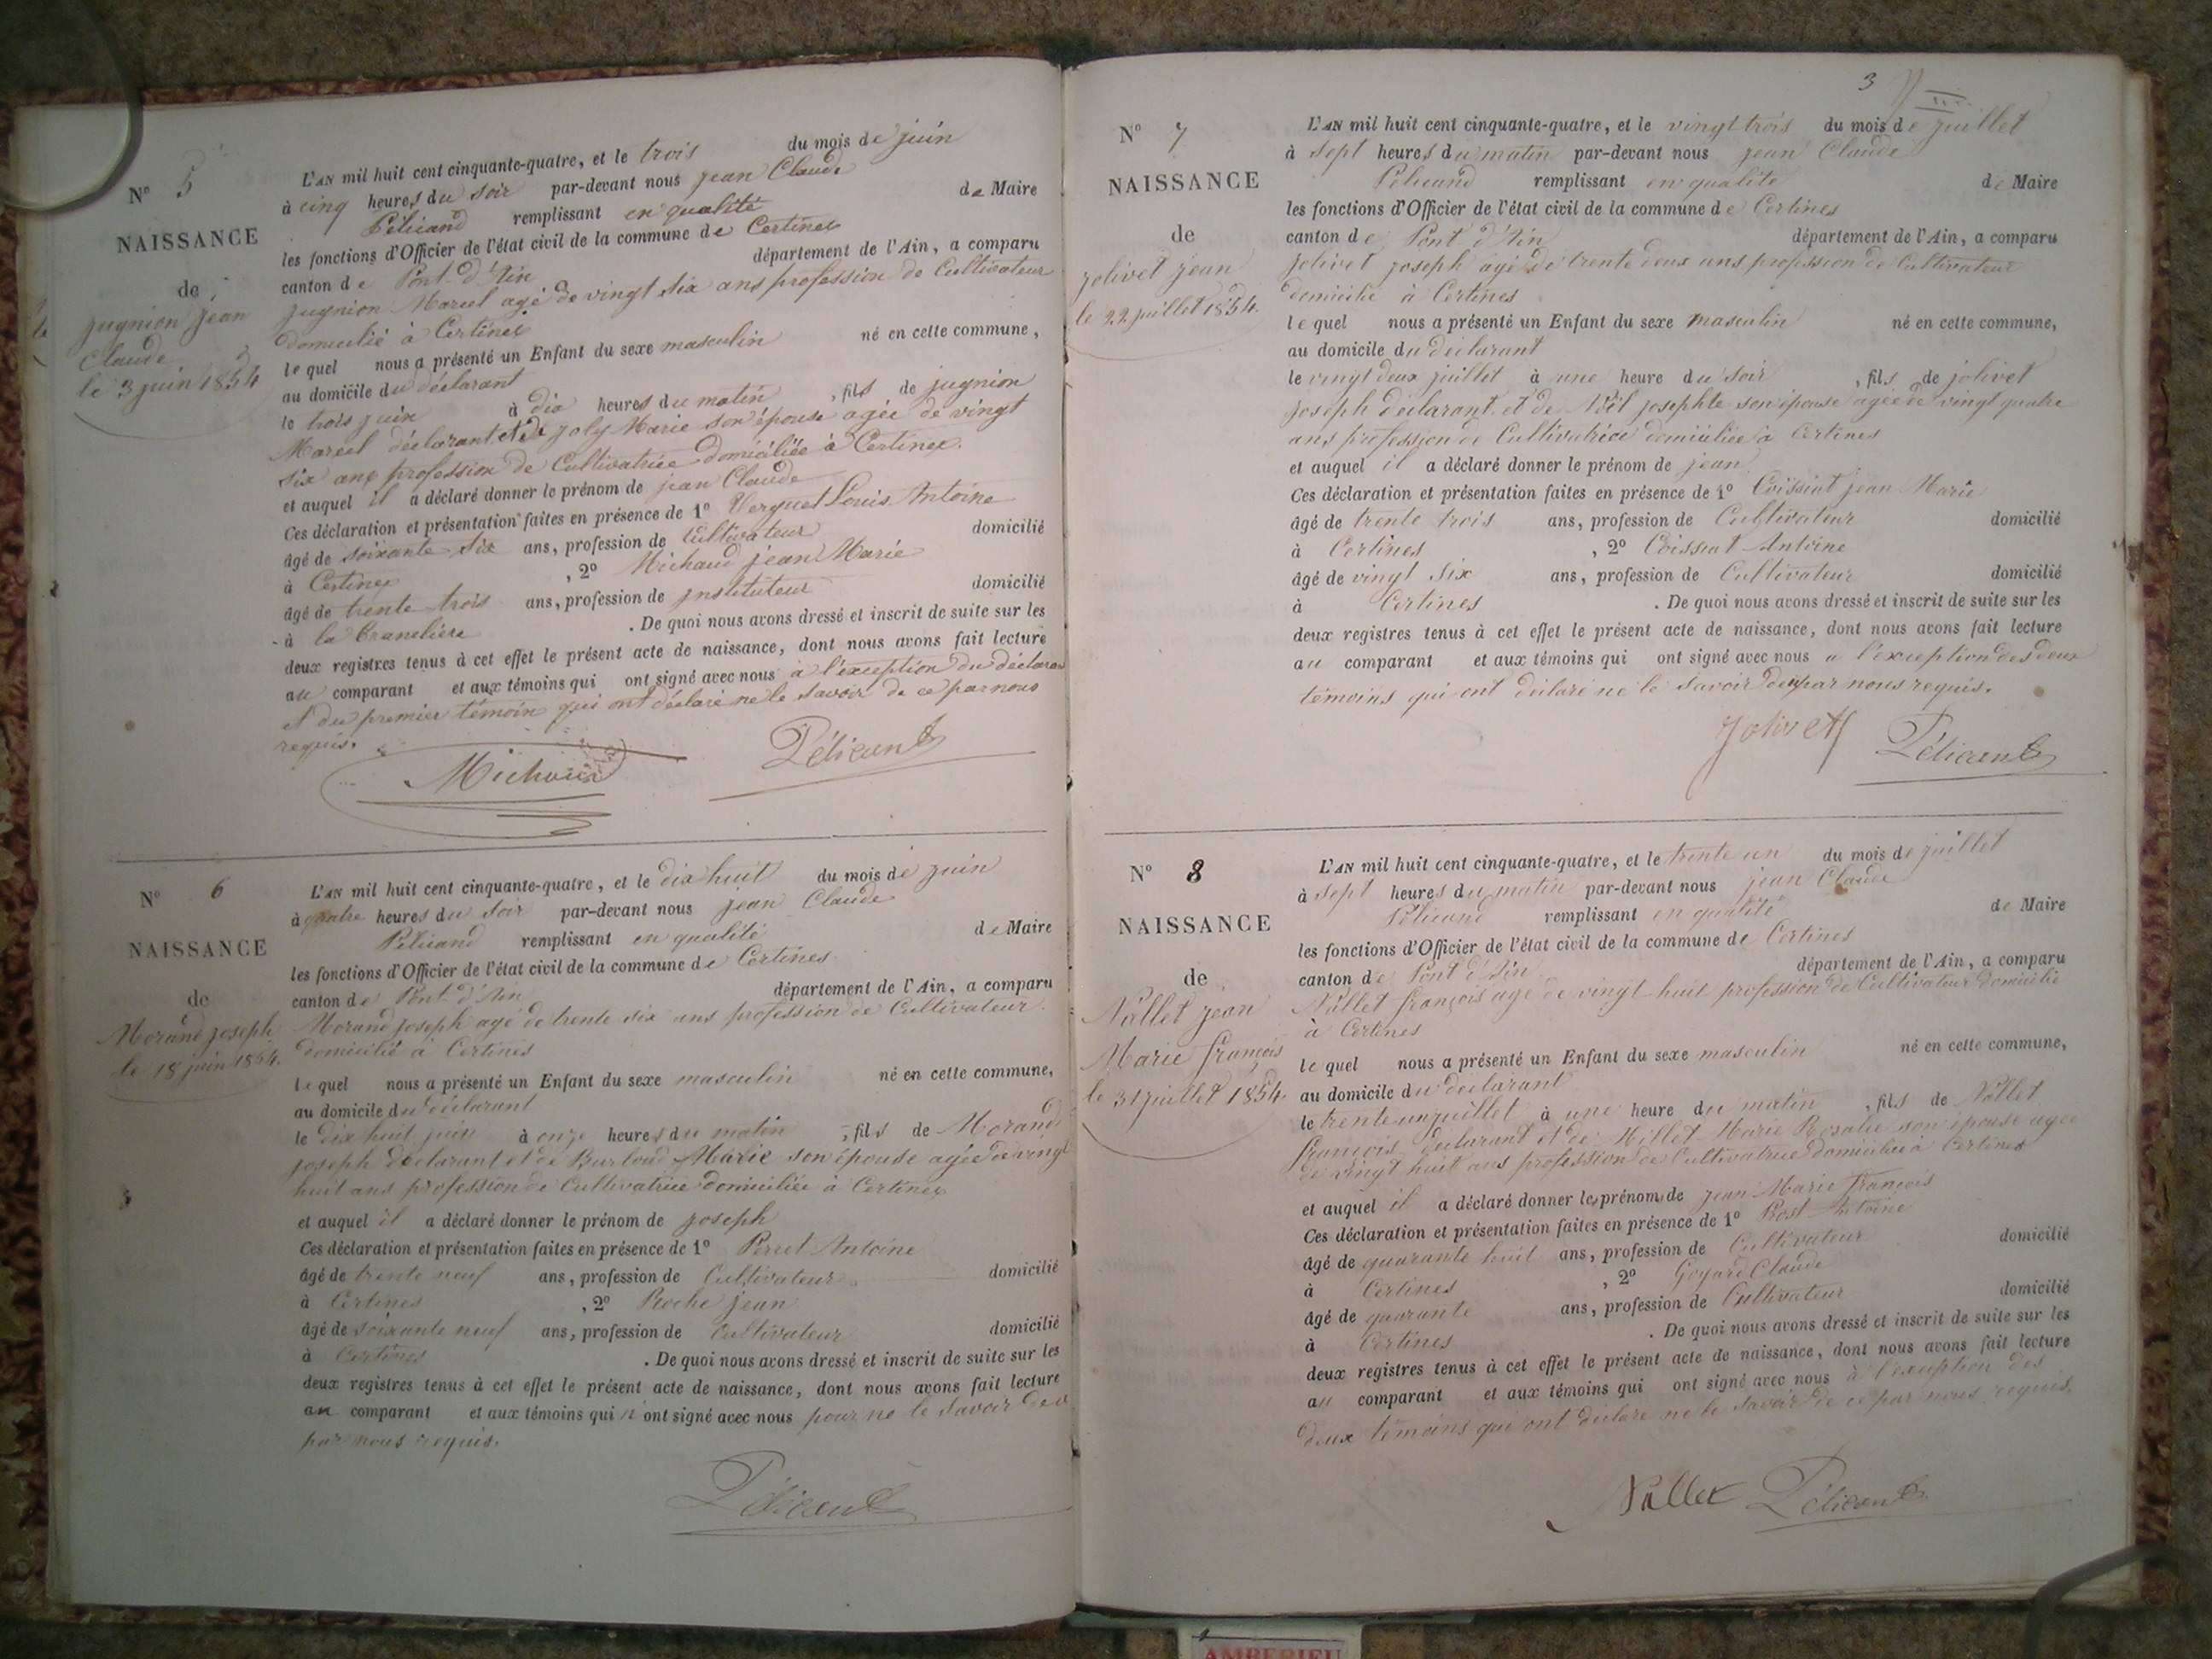 N° 5
NAISSANCE
de
jugnion jean
Claude
le 3 juin 1854
L'AN mil huit cent cinquante-quatre, et le trois du mois de juin
à cinq heures du soir par-devant nous jean Claude
Pélicand remplissant en qualité de Maire
les fonctions d'Officier de l'état civil de la commune de Certines
canton de Pont-d'Ain département de l'Ain, a comparu
jugnion Marcel agé de vingt six ans profession de Cultivateur
domicilié à Certines
lequel nous a présenté un Enfant du sexe masculin né en cette commune,
au domicile du déclarant
le trois juin à dix heures du matin, fils de jugnion
Marcel déclarant et de joly Marie son épouse agée de vingt
six ans profession de Cultivatrice domiciliée à Certines.
et auquel il a déclaré donner le prénom de jean Claude
Ces déclaration et présentation faites en présence de 1° Verguet Louis Antoine
âgé de soixante six ans, profession de Cultivateur domicilié
à Certines, 2° Michaud jean Marie
âgé de trente trois ans, profession de jnstituteur domicilié
à la Tranclière. De quoi nous avons dressé et inscrit de suite sur les
deux registres tenus à cet effet le présent acte de naissance, dont nous avons fait lecture
au comparant et aux témoins qui ont signé avec nous à l'exception du déclarant
et du premier témoin qui ont déclaré ne le savoir de ce par nous
requis.
Michaud Pélicand
N° 6
NAISSANCE
de
Morand joseph
le 18 juin 1854.
L'AN mil huit cent cinquante-quatre, et le dix huit du mois de juin
à quatre heures du soir par-devant nous jean Claude
Pélicand remplissant en qualité de Maire
les fonctions d'Officier de l'état civil de la commune de Certines
canton de Pont-d'Ain département de l'Ain, a comparu
Morand joseph agé de trente six ans profession de Cultivateur
domicilié à Certines
lequel nous a présenté un Enfant du sexe masculin né en cette commune,
au domicile du déclarant
le dix huit juin à onze heures du matin, fils de Morand
joseph déclarant et de Burloud Marie son épouse agée de vingt
huit ans profession de Cultivatrice domiciliée à Certines
et auquel il a déclaré donner le prénom de joseph
Ces déclaration et présentation faites en présence de 1° Perret Antoine
âgé de trente neuf ans, profession de Cultivateur domicilié
à Certines, 2° Roche jean
âgé de soixante neuf ans, profession de Cultivateur domicilié
à Certines. De quoi nous avons dressé et inscrit de suite sur les
deux registres tenus à cet effet le présent acte de naissance, dont nous avons fait lecture
au comparant et aux témoins qui n'ont signé avec nous pour ne le savoir de ce
par nous requis.
Pélicand
3
N° 7
NAISSANCE
de
jolivet jean
le 22 juillet 1854.
L'AN mil huit cent cinquante-quatre, et le vingt trois du mois de juillet
à sept heures du matin par-devant nous jean Claude
Pélicand remplissant en qualité de Maire
les fonctions d'Officier de l'état civil de la commune de Certines
canton de Pont d'Ain département de l'Ain, a comparu
jolivet joseph agé de trente deux ans profession de Cultivateur
domicilié à Certines
lequel nous a présenté un Enfant du sexe masculin né en cette commune,
au domicile du déclarant
le vingt deux juillet à une heure du soir, fils de jolivet
joseph déclarant et de Noël josephte son épouse agée de vingt quatre
ans profession de Cultivatrice domiciliée à Certines
et auquel il a déclaré donner le prénom de jean
Ces déclaration et présentation faites en présence de 1° Coissiat jean Marie
âgé de trente trois ans, profession de Cultivateur domicilié
à Certines, 2° Coissiat Antoine
âgé de vingt six ans, profession de Cultivateur domicilié
à Certines. De quoi nous avons dressé et inscrit de suite sur les
deux registres tenus à cet effet le présent acte de naissance, dont nous avons fait lecture
au comparant et aux témoins qui ont signé avec nous a l'exception des deux
témoins qui ont déclaré ne le savoir de ce par nous requis.
jolivet Pélicand
N° 8
NAISSANCE
de
Vallet jean
Marie françois
le 31 juillet 1854.
L'AN mil huit cent cinquante-quatre, et le trente un du mois de juillet
à sept heures du matin par-devant nous jean Claude
Pélicand remplissant en qualité de Maire
les fonctions d'Officier de l'état civil de la commune de Certines
canton de Pont d'Ain département de l'Ain, a comparu
Vallet françois agé de vingt-huit profession de Cultivateur domicilié
à Certines
lequel nous a présenté un Enfant du sexe masculin né en cette commune,
au domicile du déclarant
le trente un juillet à une heure du matin, fils de Vallet
françois déclarant et de Millet Marie Rosalie son épouse agée
de vingt huit ans profession de Cultivatrice domiciliée à Certines
et auquel il a déclaré donner le prénom de jean Marie françois
Ces déclaration et présentation faites en présence de 1° Prost Antoine
âgé de quarante huit ans, profession de Cultivateur domicilié
à Certines, 2° Goyard Claude
âgé de quarante ans, profession de Cultivateur domicilié
à Certines. De quoi nous avons dressé et inscrit de suite sur les
deux registres tenus à cet effet le présent acte de naissance, dont nous avons fait lecture
au comparant et aux témoins qui ont signé avec nous à l'exception des
deux témoins qui ont déclaré ne le savoir de ce par nous requis.
Vallet Pélicand
AMBERIEU